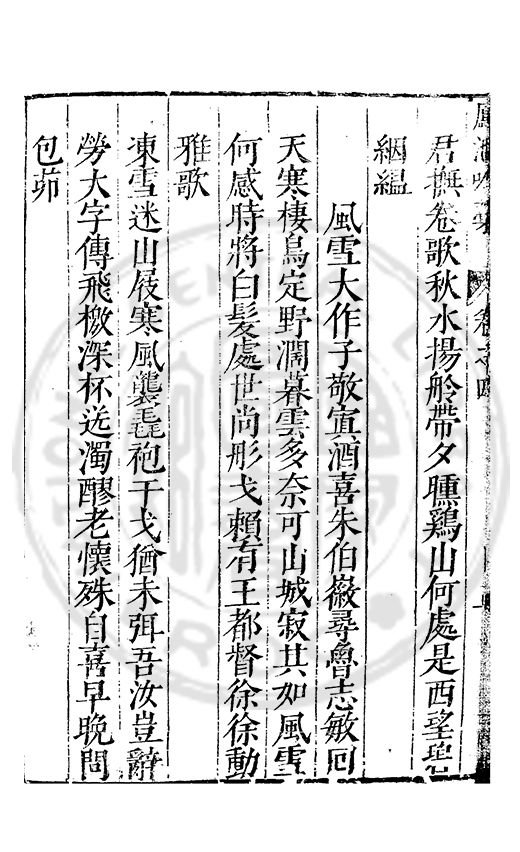 君撫卷歌秋水揚舲帶夕曛鷄山何處是西望碧
絪縕
風雪大作子敬寘酒喜朱伯徽尋魯志敏回
天寒棲鳥定野濶暮雲多奈可山城寂其如風雪
何感時將白髮處世尚彤戈賴有王都督徐徐動
雅歌
凍雪迷山屐寒風襲毳袍干戈猶未弭吾汝豈辭
勞大字傳飛檄深杯送濁醪老懷殊自喜早晩問
包茆